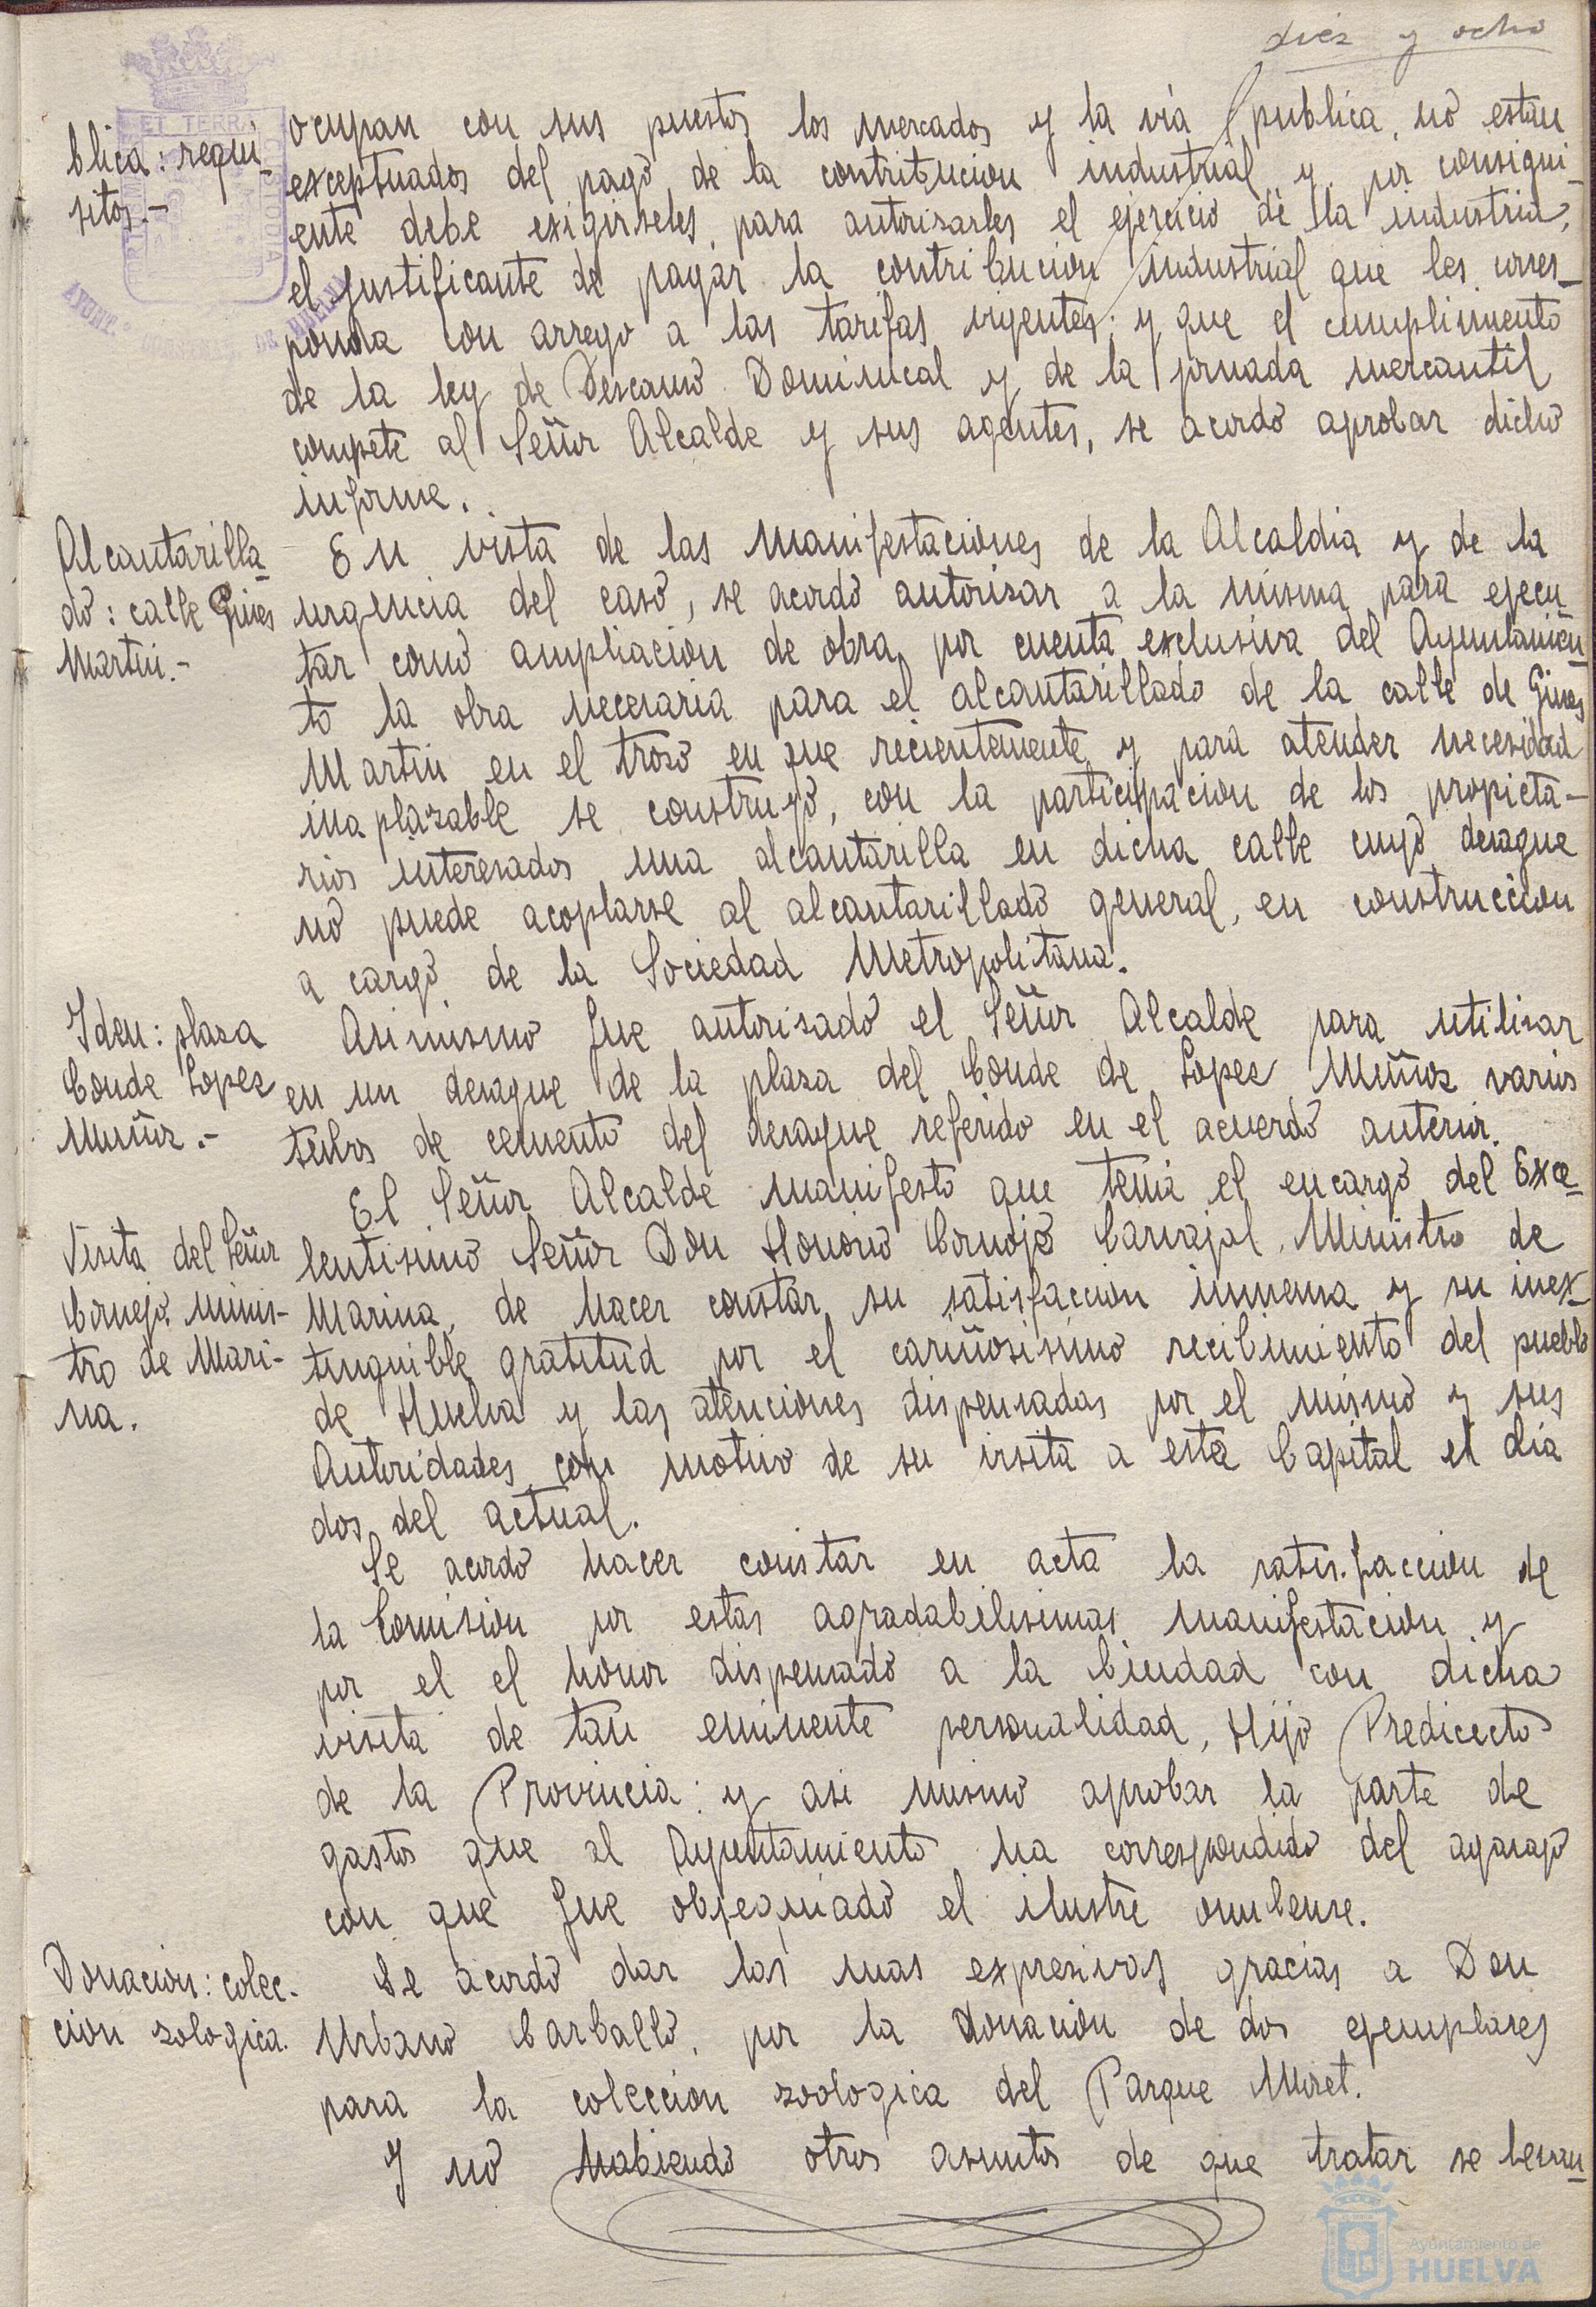 diez y ocho
blica: requi-
sitos.-
ocupan con sus puestos los mercados y la via publica, no estan
exceptuados del pago de la contribucion industrial y por consigui-
ente debe exigirseles, para autorizarles el ejercicio de la industria,
el justificante de pagar la contribucion industrial que les corres-
ponda con arrego a las tarifas vigentes; y que el cumplimiento
de la ley de Descanso Dominical y de la jornada mercantil
compete al Señor Alcalde y sus agentes, se acordó aprobar dicho
informe.
Alcantarilla-
do: calle Gines
Martin.-
En vista de las manifestaciones de la Alcaldia y de la
urgencia del caso, se acordó autorizar a la misma para ejecu-
tar como ampliacion de obra, por cuenta exclusiva del Ayuntamien-
to la obra necesaria para el alcantarillado de la calle de Gines
Martin en el trozo en que recientemente y para atender necesidad
inaplazable se construyó, con la participacion de los propieta-
rios interesados una alcantarilla en dicha calle cuyo desague
no puede acoplarse al alcantarillado general, en construccion
a cargo de la Sociedad Metropolitana.
Iden: plaza
Conde Lopez
Muñoz.-
Asimismo fue autorizado el Señor Alcalde para utilizar
en un desague de la plaza del Conde de Lopez Muñoz varios
tubos de cemento del desague referido en el acuerdo anterior.
Visita del Señor
Cornejo, Minis-
tro de Mari-
na.
El Señor Alcalde manifestó que tenia el encargo del Exce-
lentisimo Señor Don Honorio Cornejo Carvajal, Ministro de
Marina, de hacer constar su satisfaccion inmensa y su inex-
tinguible gratitud por el cariñosisimo recibimiento del pueblo
de Huelva y las atenciones dispensadas por el mismo y sus
Autoridades con motivo de su visita a esta Capital el dia
dos del actual.
Se acordó hacer constar en acta la satisfaccion de
la Comision por estas agradabilisimas manifestacion y
por el el honor dispensado a la Ciudad con dicha
visita de tan eminente personalidad, Hijo Predilecto
de la Provincia: y asi mismo aprobar la parte de
gastos que al Ayuntamiento ha correspondido del agasajo
con que fue obsequiado el ilustre onubense.
Donacion: colec-
cion zologica.
Se acordó dar las mas expresivas gracias a Don
Urbano Carballo, por la donacion de dos ejemplares
para la coleccion zoologica del Parque Moret.
Y no habiendo otros asuntos de que tratar se levan-
Ayuntamiento de
HUELVA